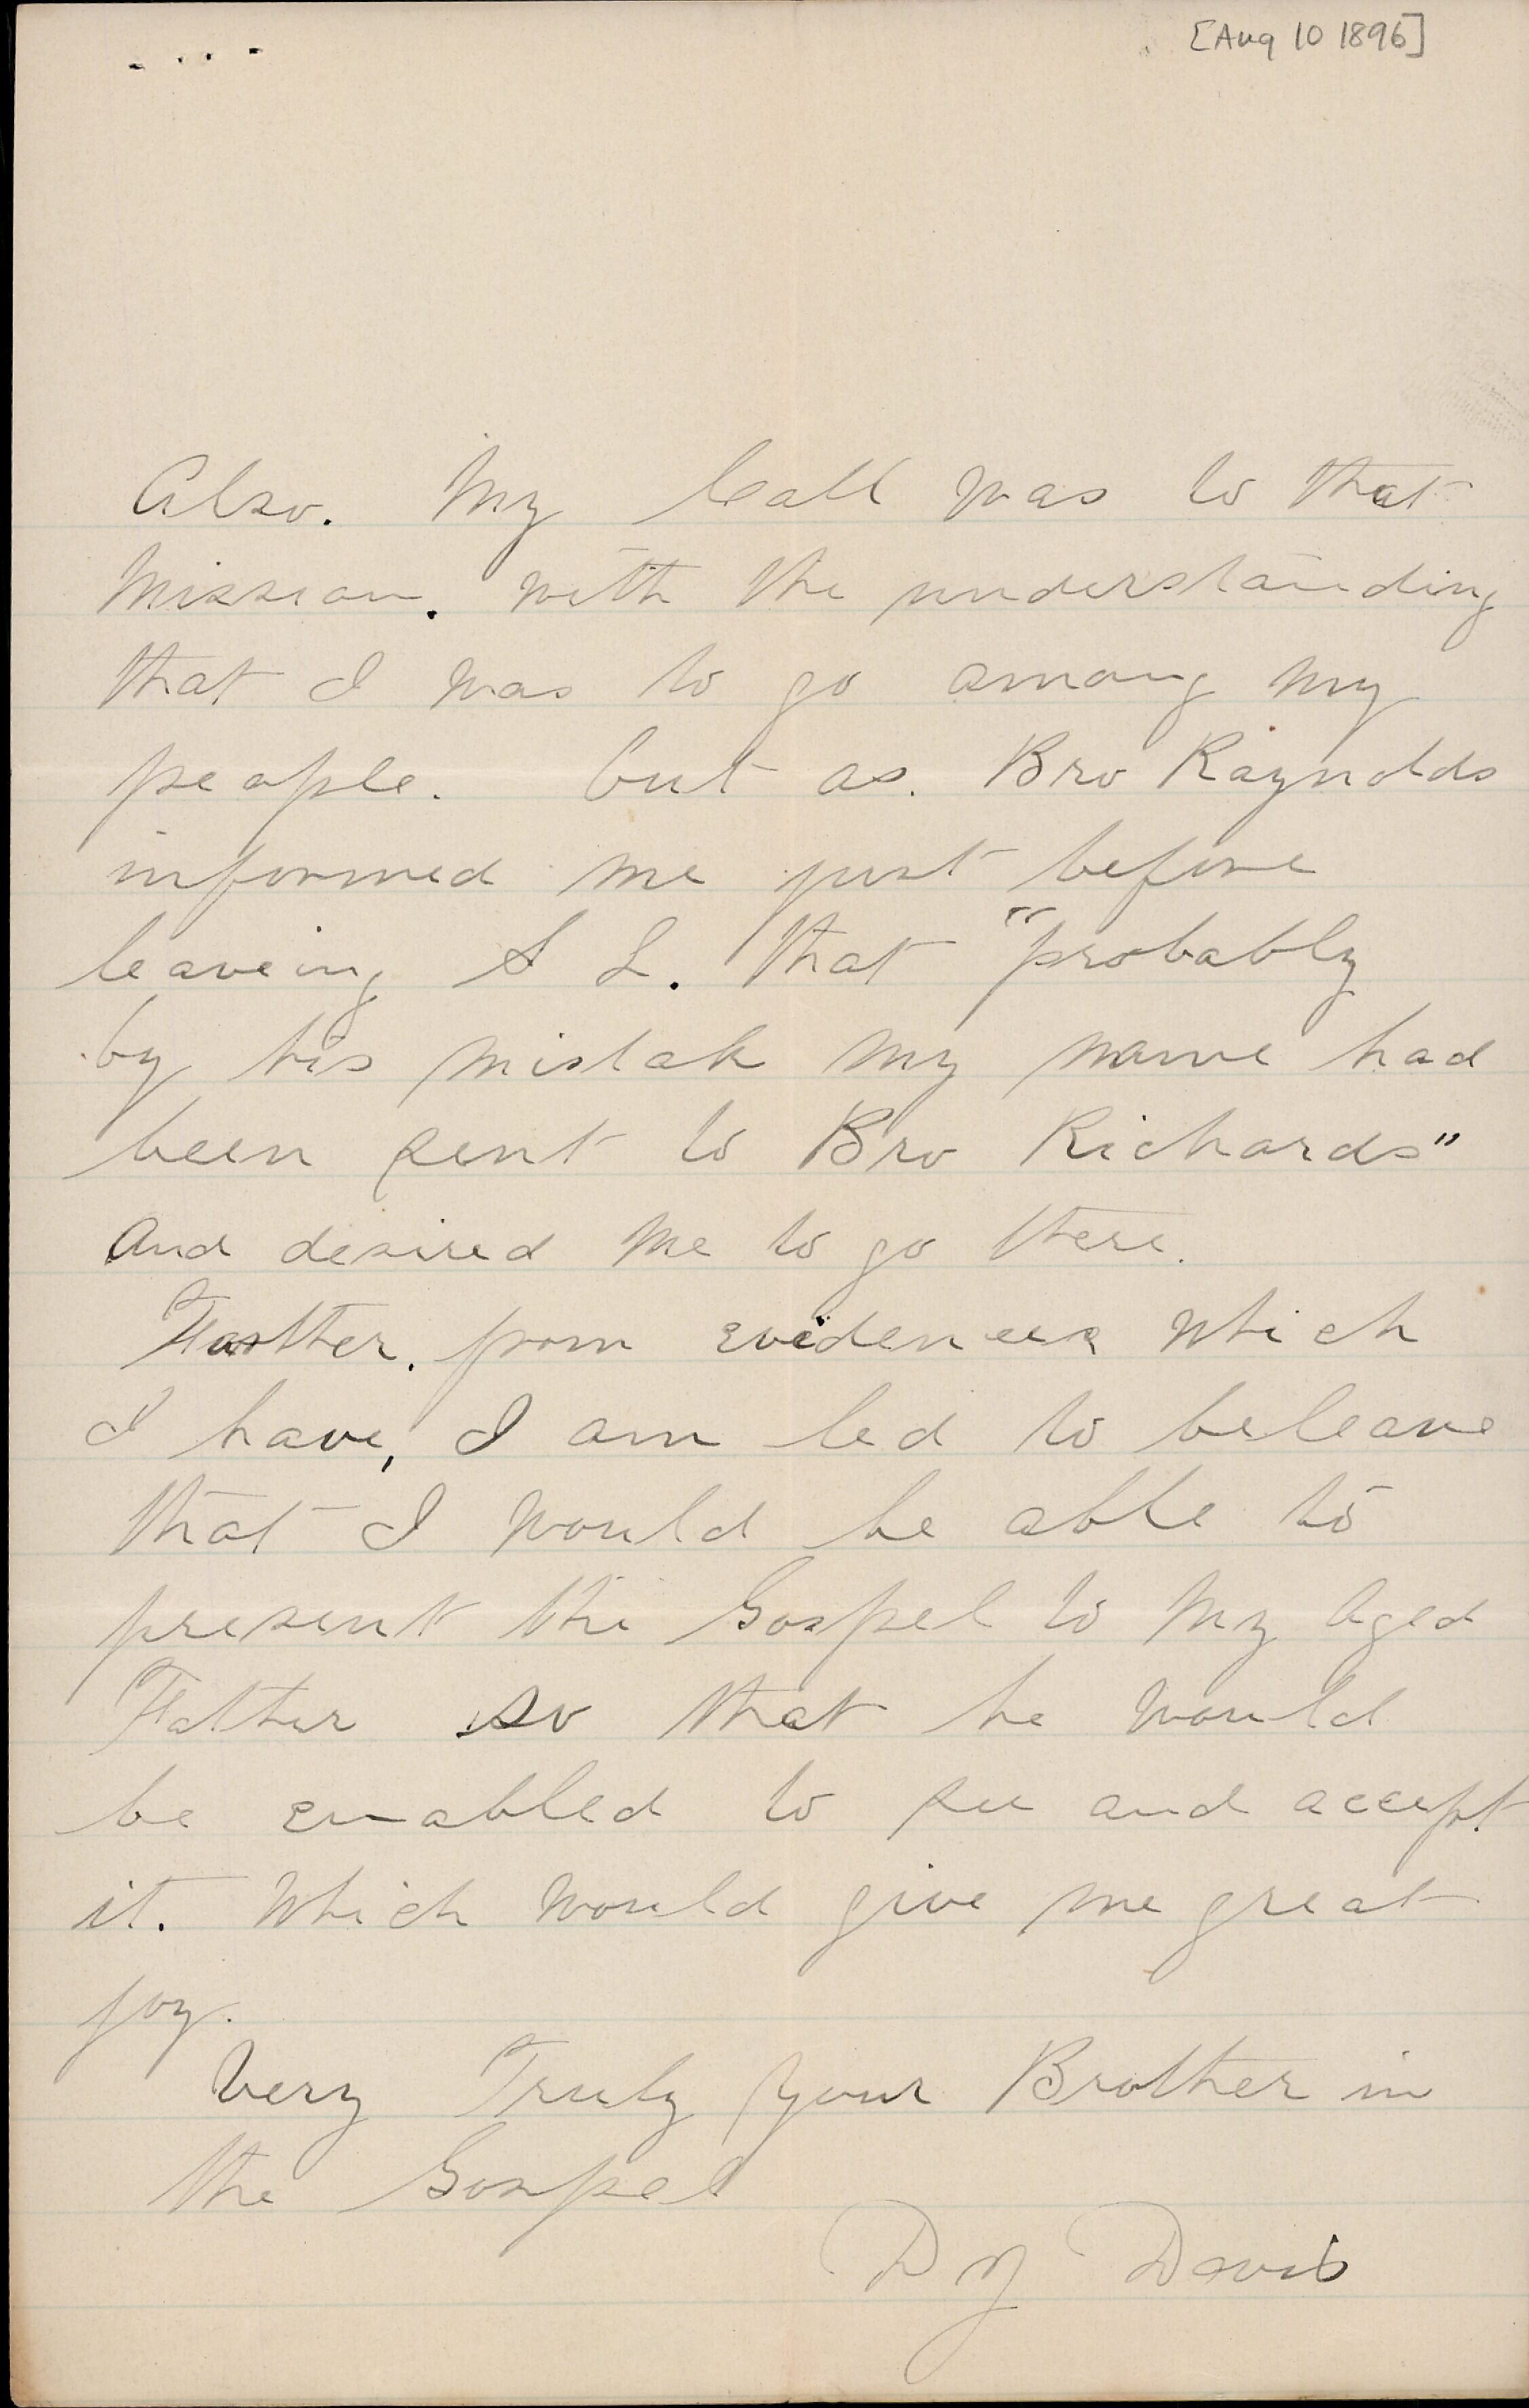 [Aug 10 1896]
Also. My Call was to that
Mission. with the understanding
that I was to go among my
people. but as. Bro Raynolds
informed me just before
leaveing S L. that "probably
by his mistak my name had
been sent to Bro Richards"
And desired me to go there.
Farther. from evidences which
I have, I am led to beleave
that I would be able to
present the Gospel to my Aged
Father so that he would
be enabled to see and accept
it. Which would give me great
joy.
Very Truly your Brother in
the Gospel
Davis